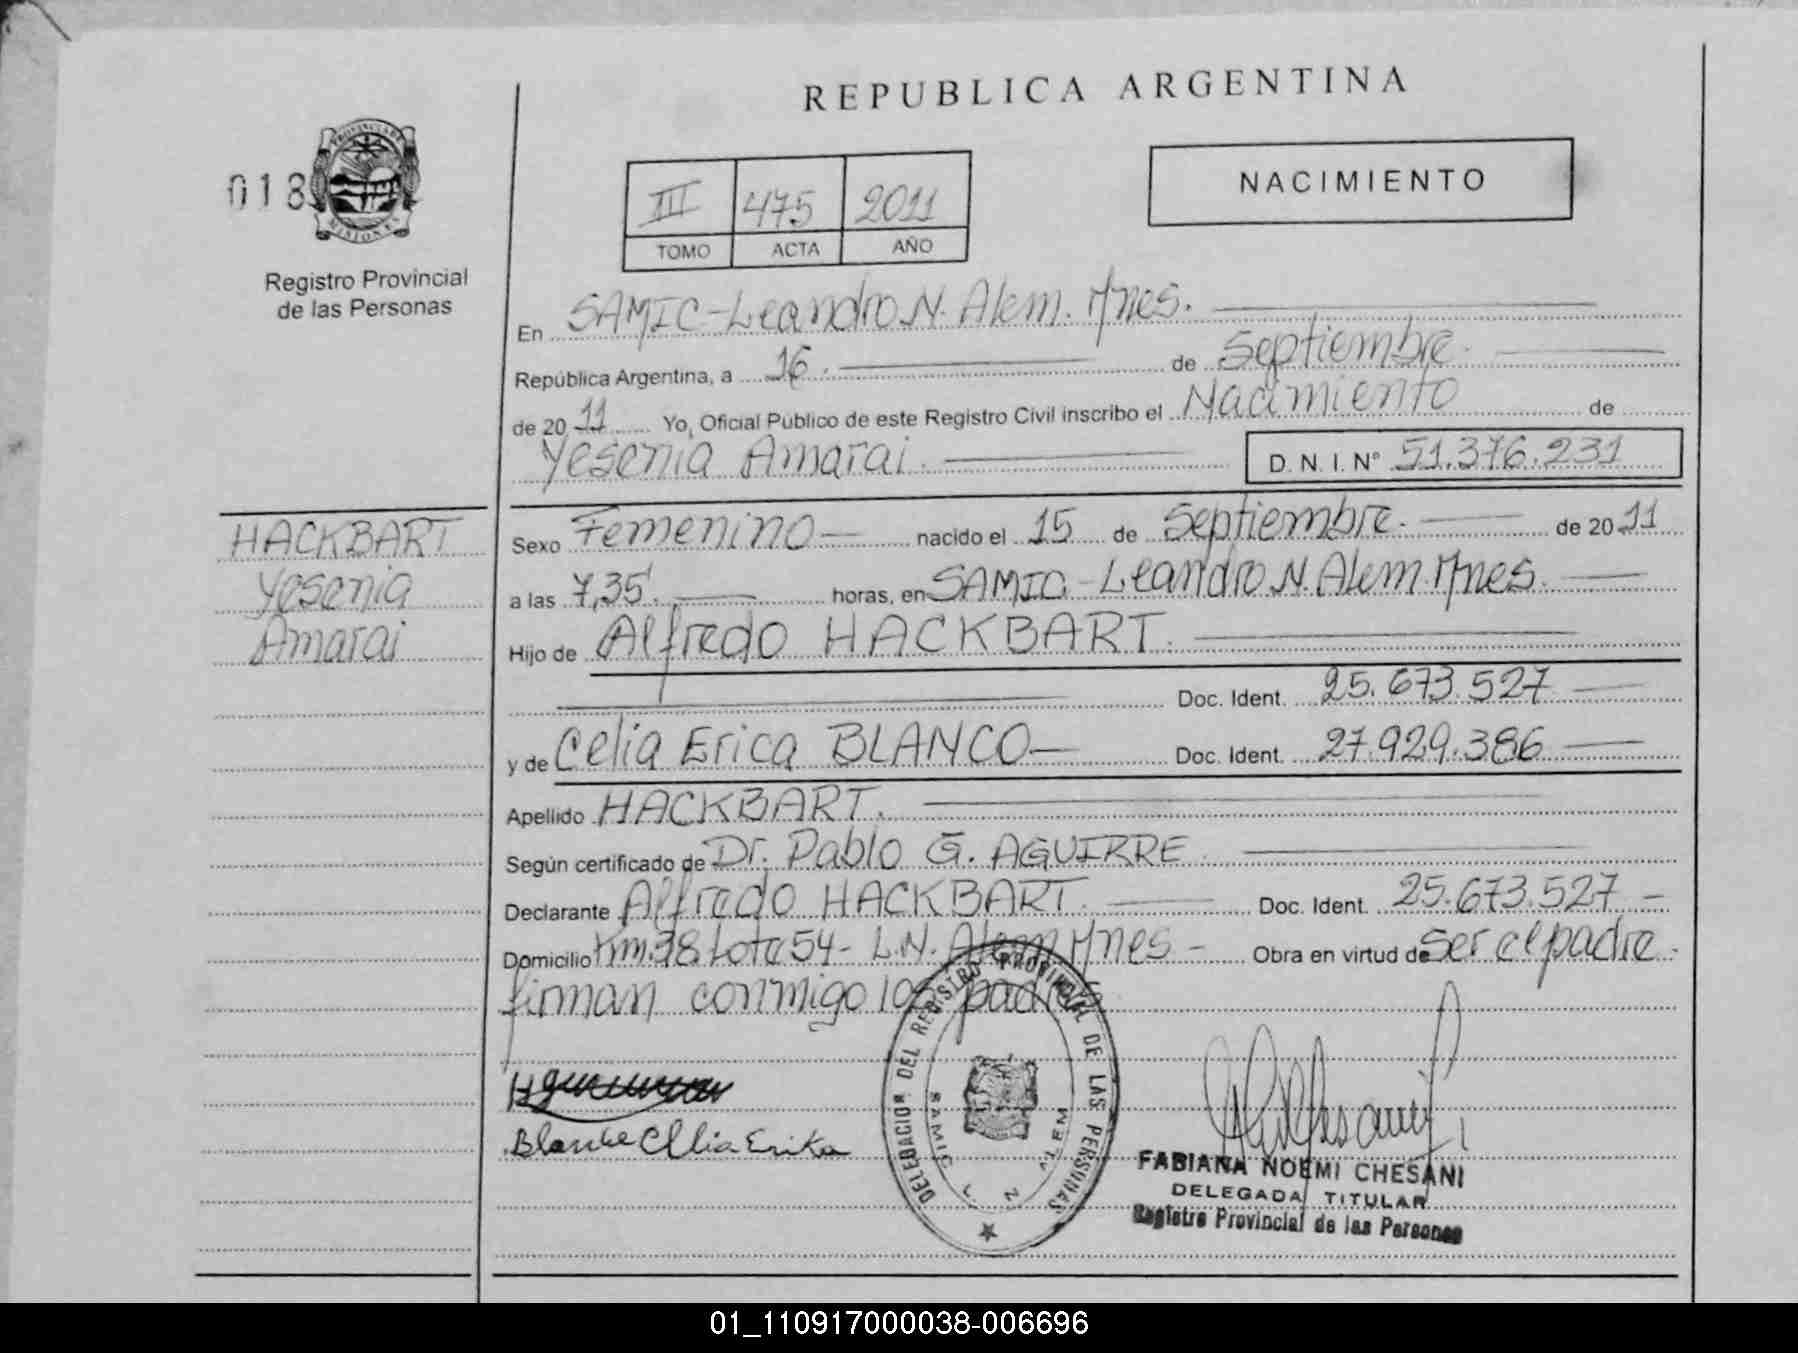 REPUBLICA ARGENTINA
018
PROVINCIA DE
MISIONES
Registro Provincial
de las Personas
III 475 2011
TOMO ACTA AÑO
NACIMIENTO
En SAMIC-Leandro N. Alem. Mnes.
República Argentina, a 16. de Septiembre.
de 20 11 Yo, Oficial Público de este Registro Civil inscribo el Nacimiento de
Yesenia Amarai. D. N. I. Nº 51.376.231
HACKBART
Yesenia
Amarai
Sexo Femenino nacido el 15 de Septiembre. de 20 11
a las 7,35. horas, en SAMIC-Leandro N. Alem. Mnes.
Hijo de Alfredo HACKBART.
Doc. Ident. 25.673.527
y de Celia Erica BLANCO Doc. Ident. 27.929.386
Apellido HACKBART.
Según certificado de Dr. Pablo G. AGUIRRE.
Declarante Alfredo HACKBART. Doc. Ident. 25.673.527
Domicilio Km.38 Lote 54 - L.N. Alem Mnes - Obra en virtud de ser el padre.
firman conmigo los padres
DELEGACION DEL REGISTRO PROVINCIAL DE LAS PERSONAS
SAMIC L. N. ALEM
FABIANA NOEMI CHESANI
DELEGADA TITULAR
Registro Provincial de las Personas
01_110917000038-006696